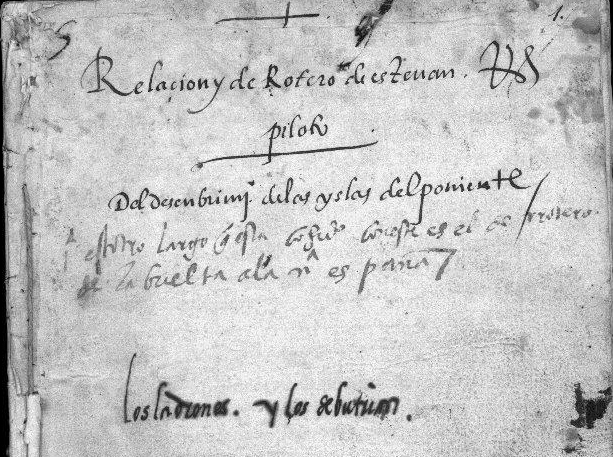 1.
Relaçion y de Rotero de esteuan. R§
piloto
Del descubrimjº delas yslas del poniente
est otro largo q esta cosido con este es el de rrotero
de la buelta ala nª españa
los ladrones. y los de butuan.